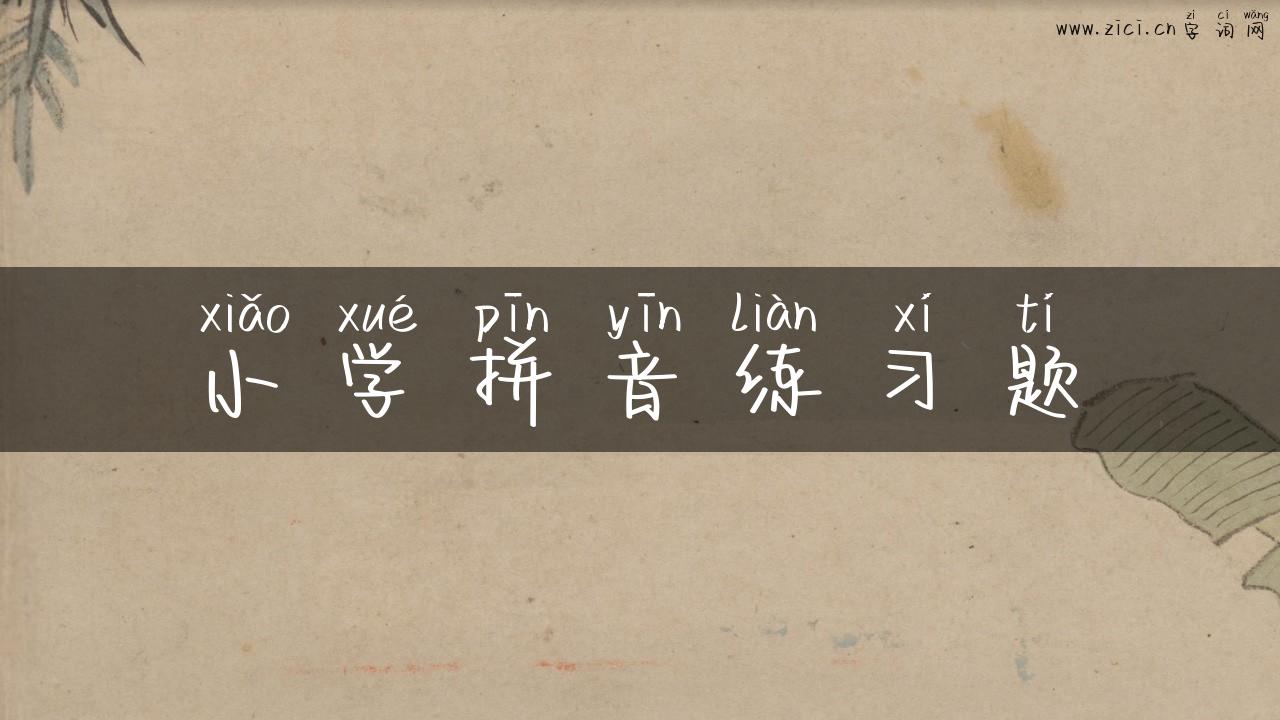 zì cí wǎng
www.zici.cn 字 词 网
xiǎo xué pīn yīn liàn xí tí
小 学 拼 音 练 习 题